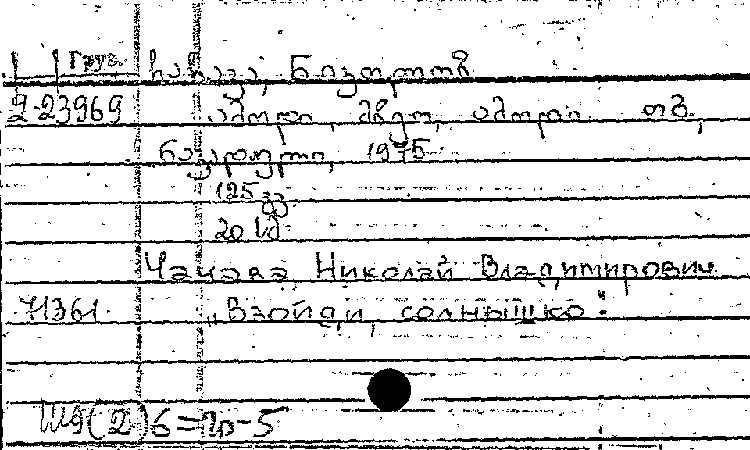 Груз. ჩაჩავა, ნიკოლოზ
2-23969 ამოდი, მზეო, ამოდი. თბ.,
ნაკადული, 1975
125 გვ.
20
Чачава, Николай Владимирович
71361. „Взойди, солнышко".
Ш9(2)6=Гр-5